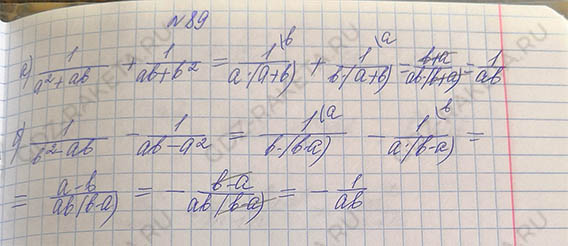 №89
а) 1/(a²+ab) + 1/(ab+b²) = 1\b/(a·(a+b)) + 1\a/(b·(a+b)) = (b+a)/(ab·(b+a)) = 1/(ab)
б) 1/(b²-ab) - 1/(ab-a²) = 1\a/(b·(b-a)) - 1\b/(a·(b-a)) =
= (a-b)/(ab(b-a)) = - (b-a)/(ab(b-a)) = - 1/(ab)
GDZ-RAKETA.RU